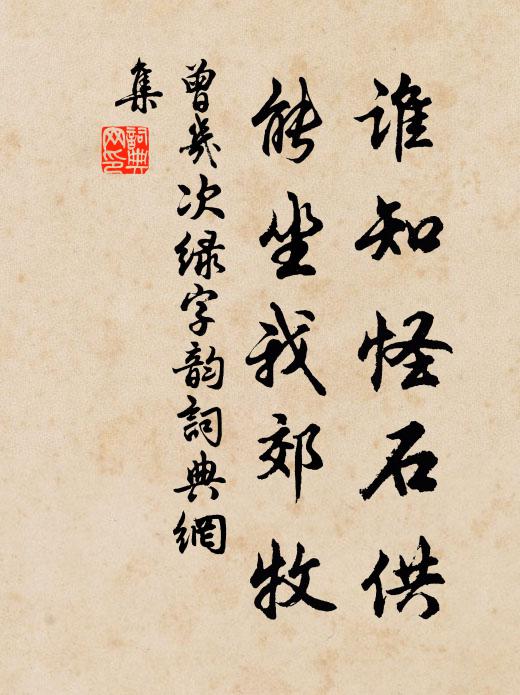 谁知怪石供
能坐我郊牧
曾几次绿字韵詞典網
集
詞典
网印